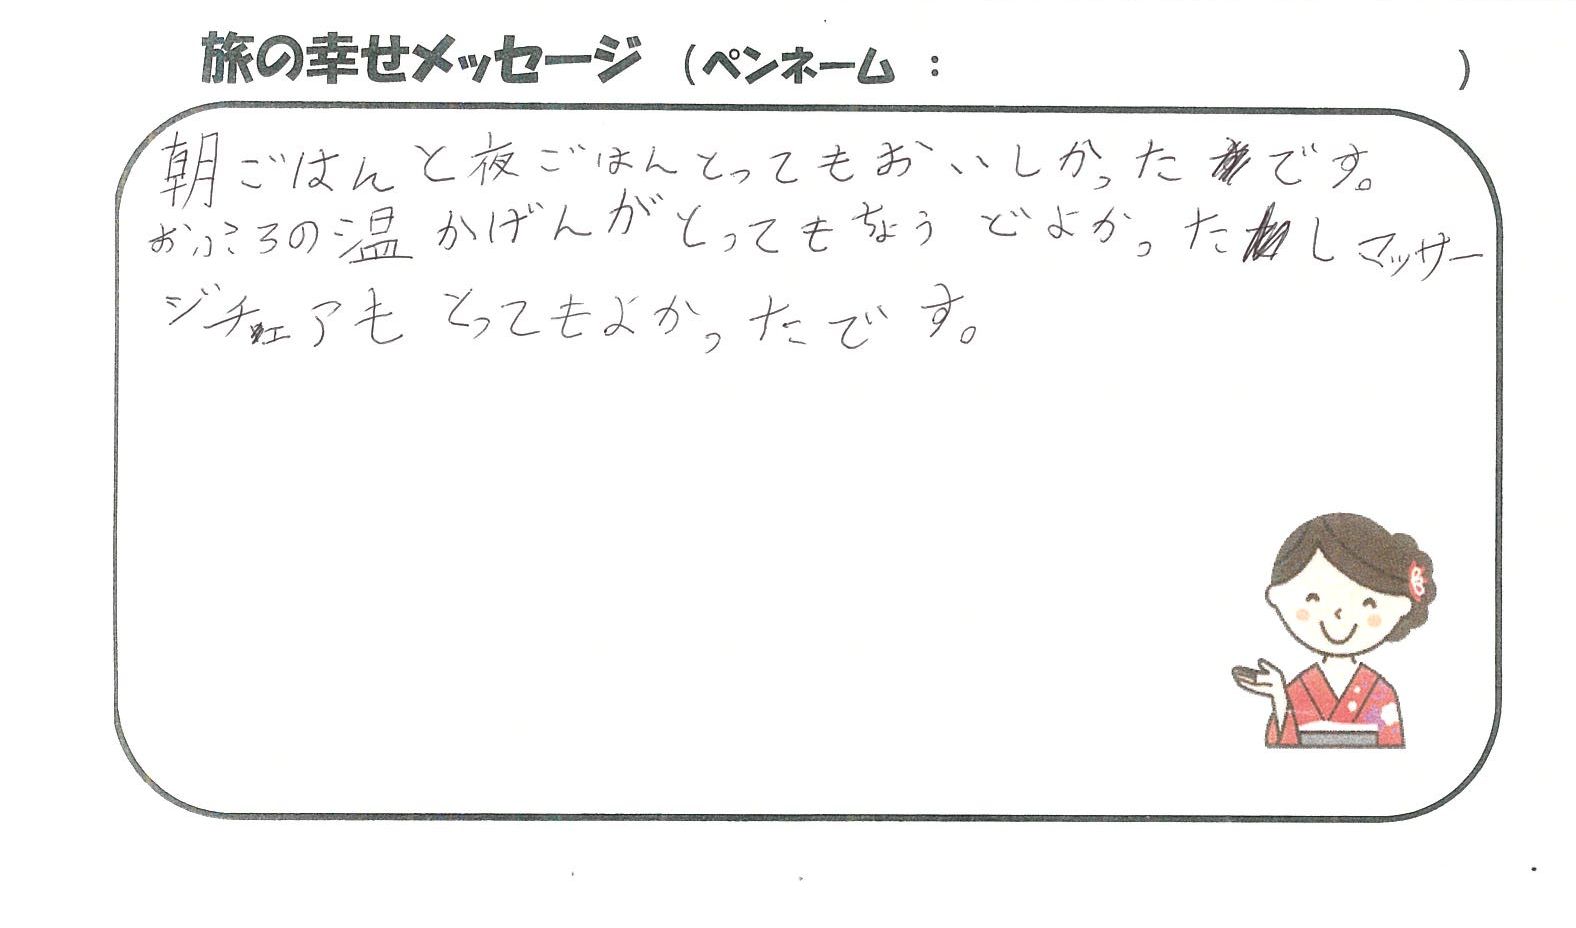 旅の幸せメッセージ （ペンネーム ： ）
朝ごはんと夜ごはんとってもおいしかったです。
おふろの温かげんがとってもちょうどよかったしマッサー
ジチェアもとってもよかったです。